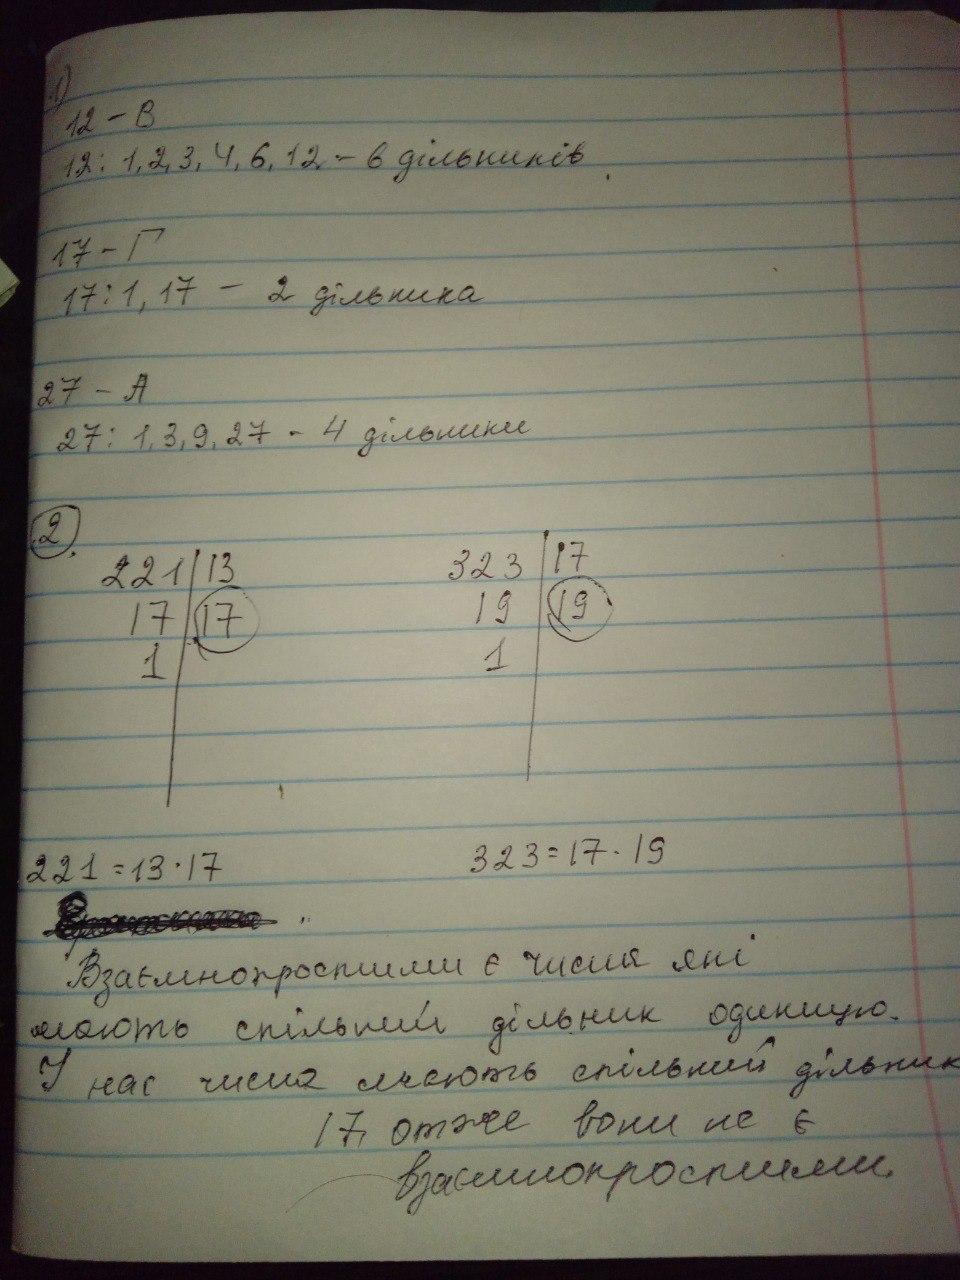 1)
12 - В
12: 1, 2, 3, 4, 6, 12 - 6 дільників.
17 - Г
17: 1, 17 - 2 дільника
27 - А
27: 1, 3, 9, 27 - 4 дільники
2.
221 | 13
17 | 17
1
323 | 17
19 | 19
1
221 = 13 · 17
323 = 17 · 19
Взаємнопростими є числа які
мають спільний дільник одиницю.
У нас числа мають спільний дільник
17, отже вони не є
взаємнопростими.